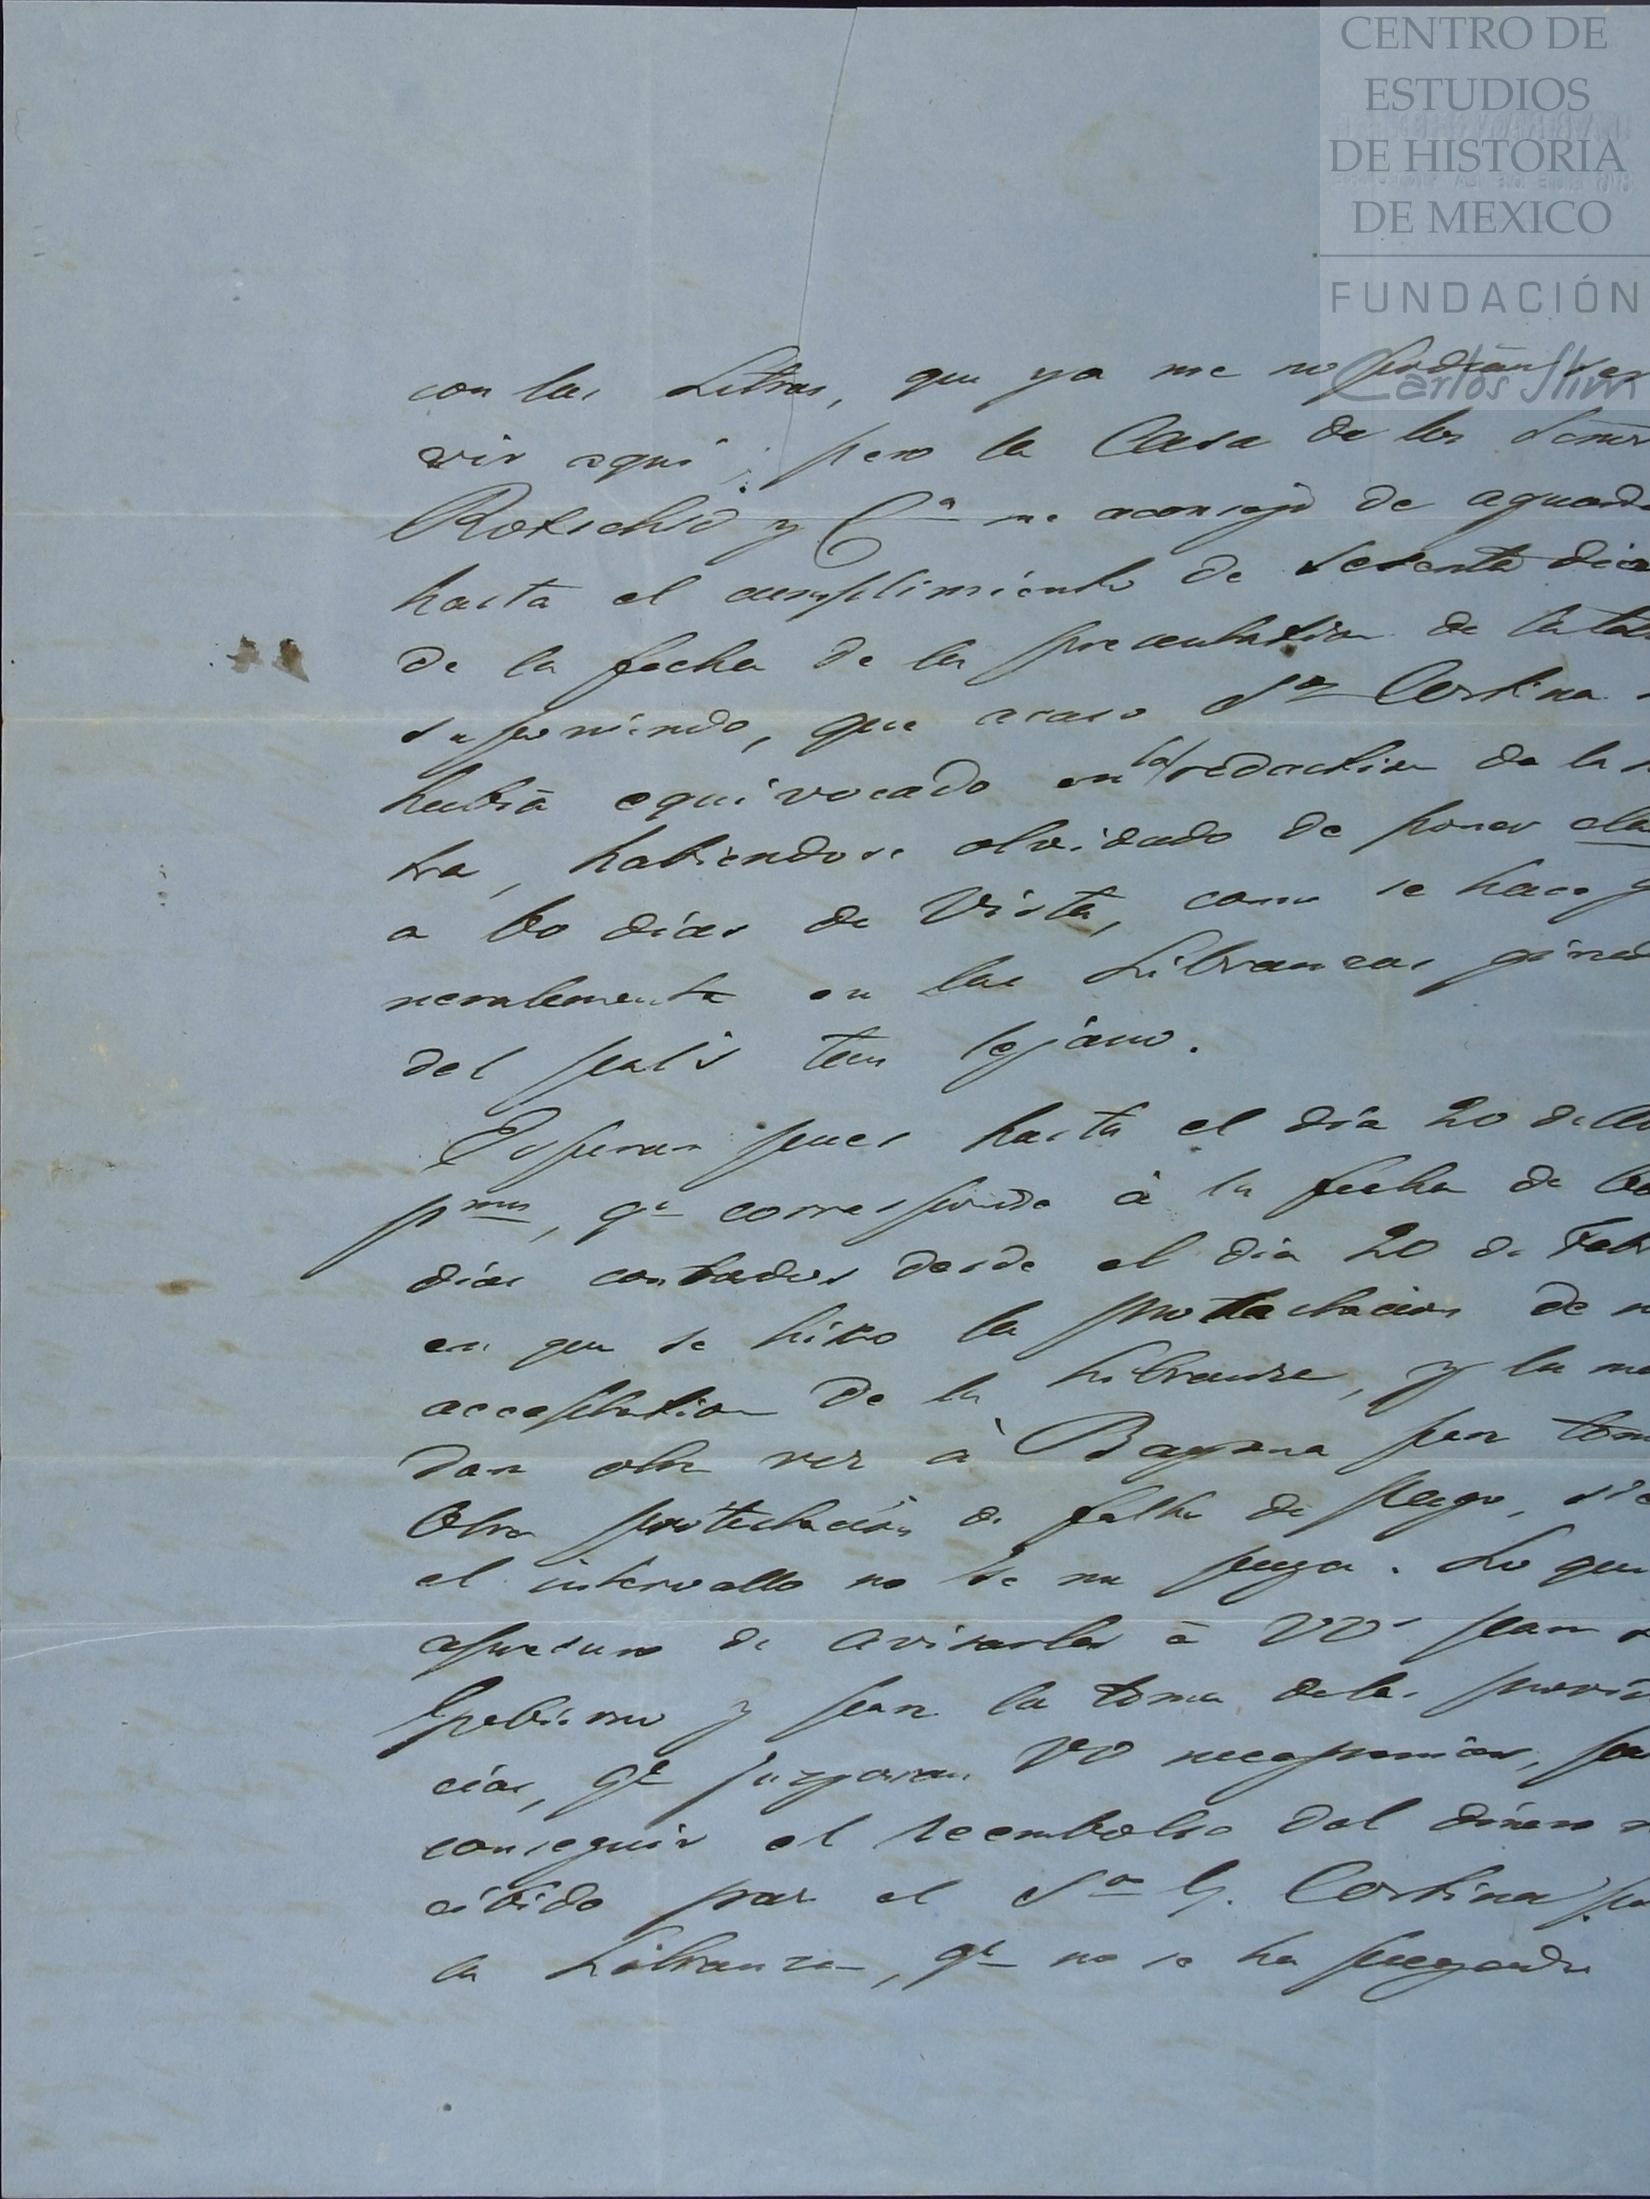 CENTRO DE
ESTUDIOS
DE HISTORIA
DE MEXICO
FUNDACIÓN
Carlos Slim
con las Letras, que ya me no podian ser
vir aqui; pero la Casa de los Señor
Rotschid y Cª me aconsejo de aguarda
hasta el cumplimiento de sesenta dias
de la fecha de la presentation de la
suponiendo, que acaso Sr Cortina
hubia equivocado en la redaction de la
tra, habiendose olvidado de poner
a 60 dias de Vista, como se hace g
neralemente en las Libranzas girad
del païs tan lejano.
Esperan pues hasta el dia 20 de
pmo, qe corresponde à la fecha de
dias contados desde el dia 20 de Feb
en que se hizo la protestacion de n
acceptation de la Libranza, y la ma
dan otra vez à Bayona par tom
Otra protestacion de falta de pago, si e
el intervallo no se me paga. Lo que
apresuro de avisarles à VVs para
Gobierno y para la toma delas provi
cias, qe juzgaran VV necessarias, pa
conseguir el reembolso del dinero r
cibido por el Sr G. Cortina p
la Libranza, qe no se ha pagado